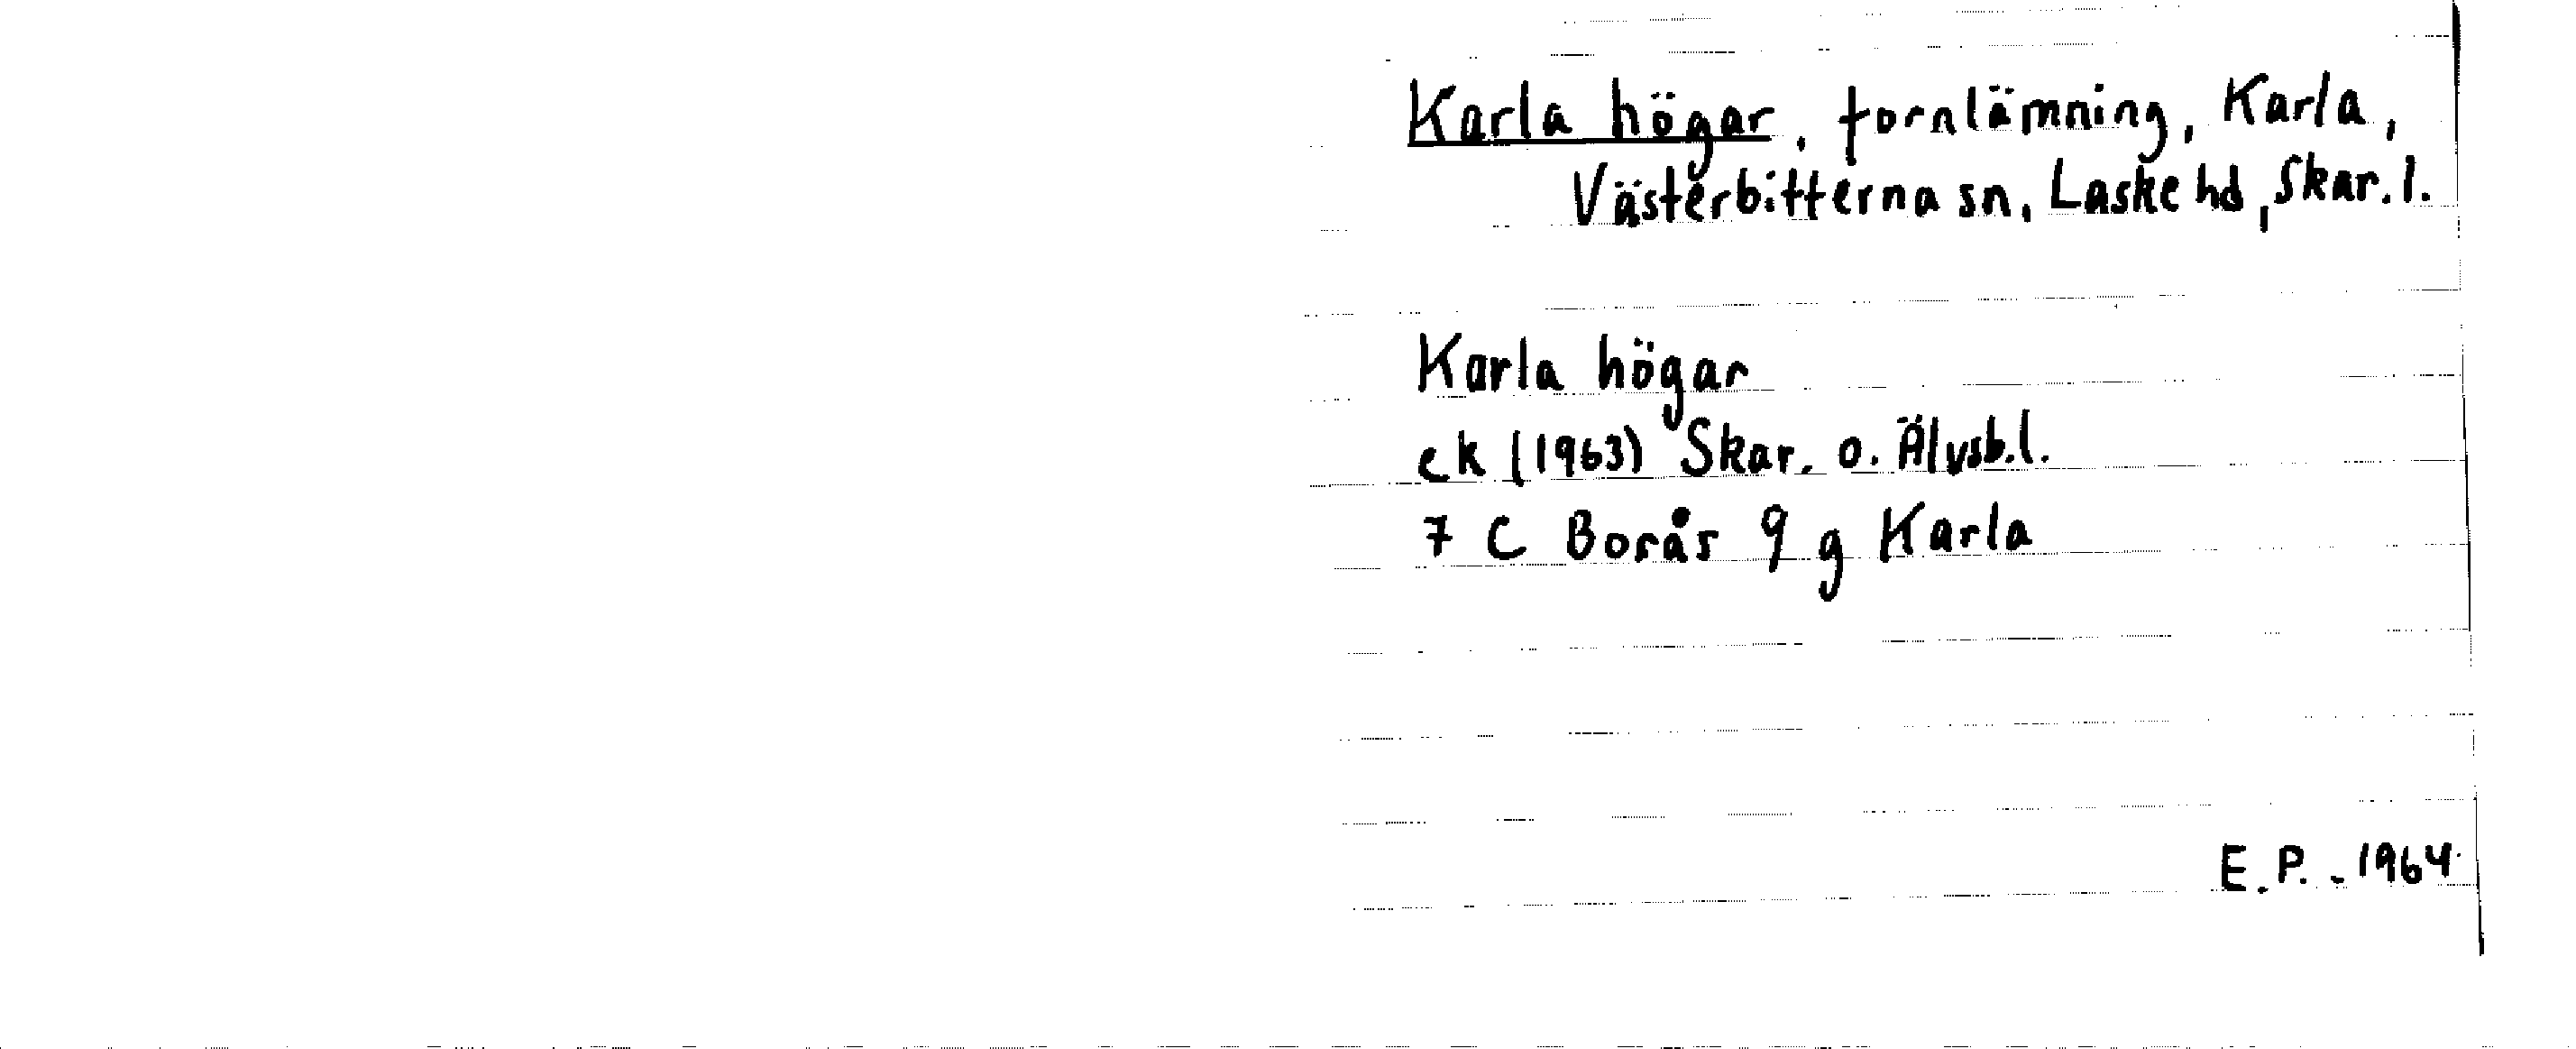 Karla högar, fornlämning, Karla,
Västerbitterna sn, Laske hd, Skar. l.
Karla högar
ek (1963) Skar. o. Älvsb.l.
7 C Borås 9 g Karla
E.P. - 1964